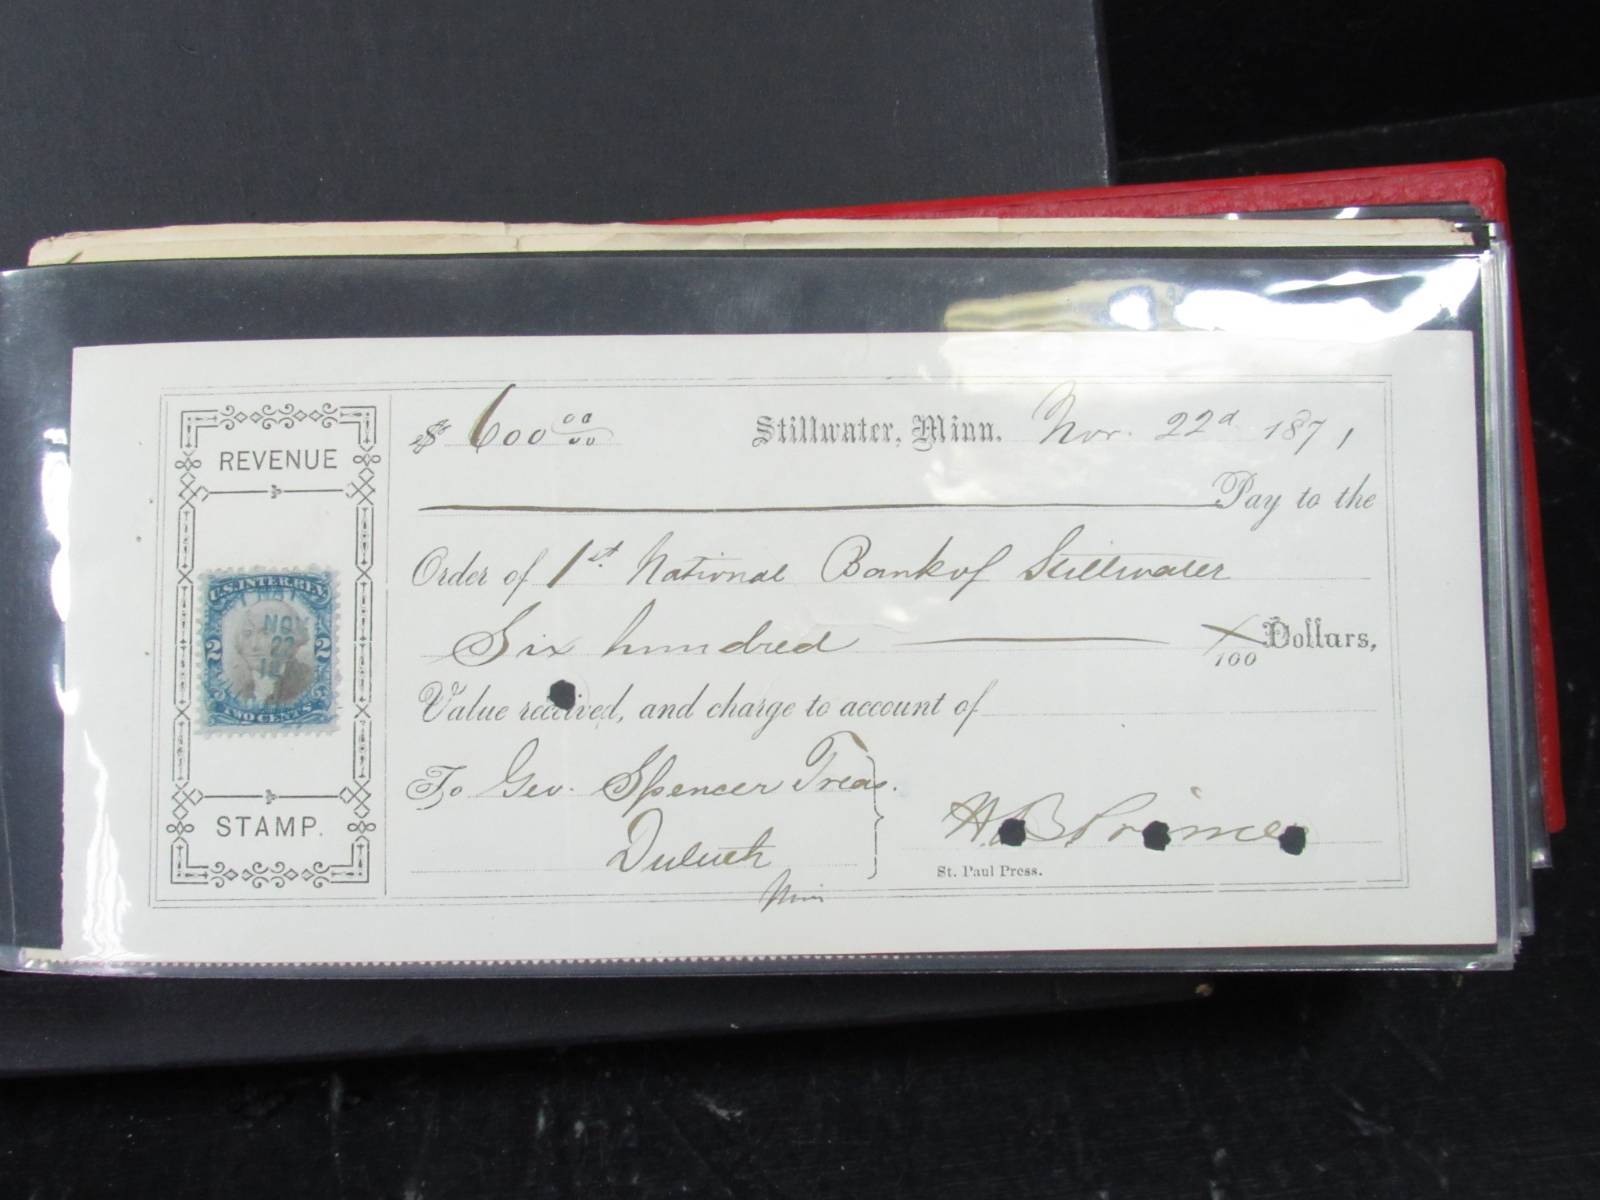 REVENUE
U.S. INTER. REV.
NOV
22
2 2
TWO CENTS
STAMP.
$ 600 00/00 Stillwater, Minn. Nov. 22d 1871,
Pay to the
Order of 1st. National Bank of Stillwater
Six hundred X/100 Dollars,
Value received, and charge to account of
To Geo. Spencer Treas.
Duluth
Minn
H.B. Prince
St. Paul Press.